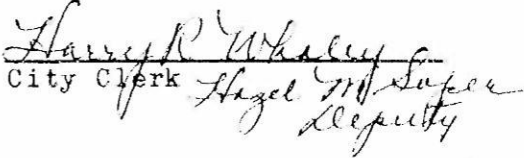 Harry R Whaley
City Clerk Hazel M Soper
Deputy